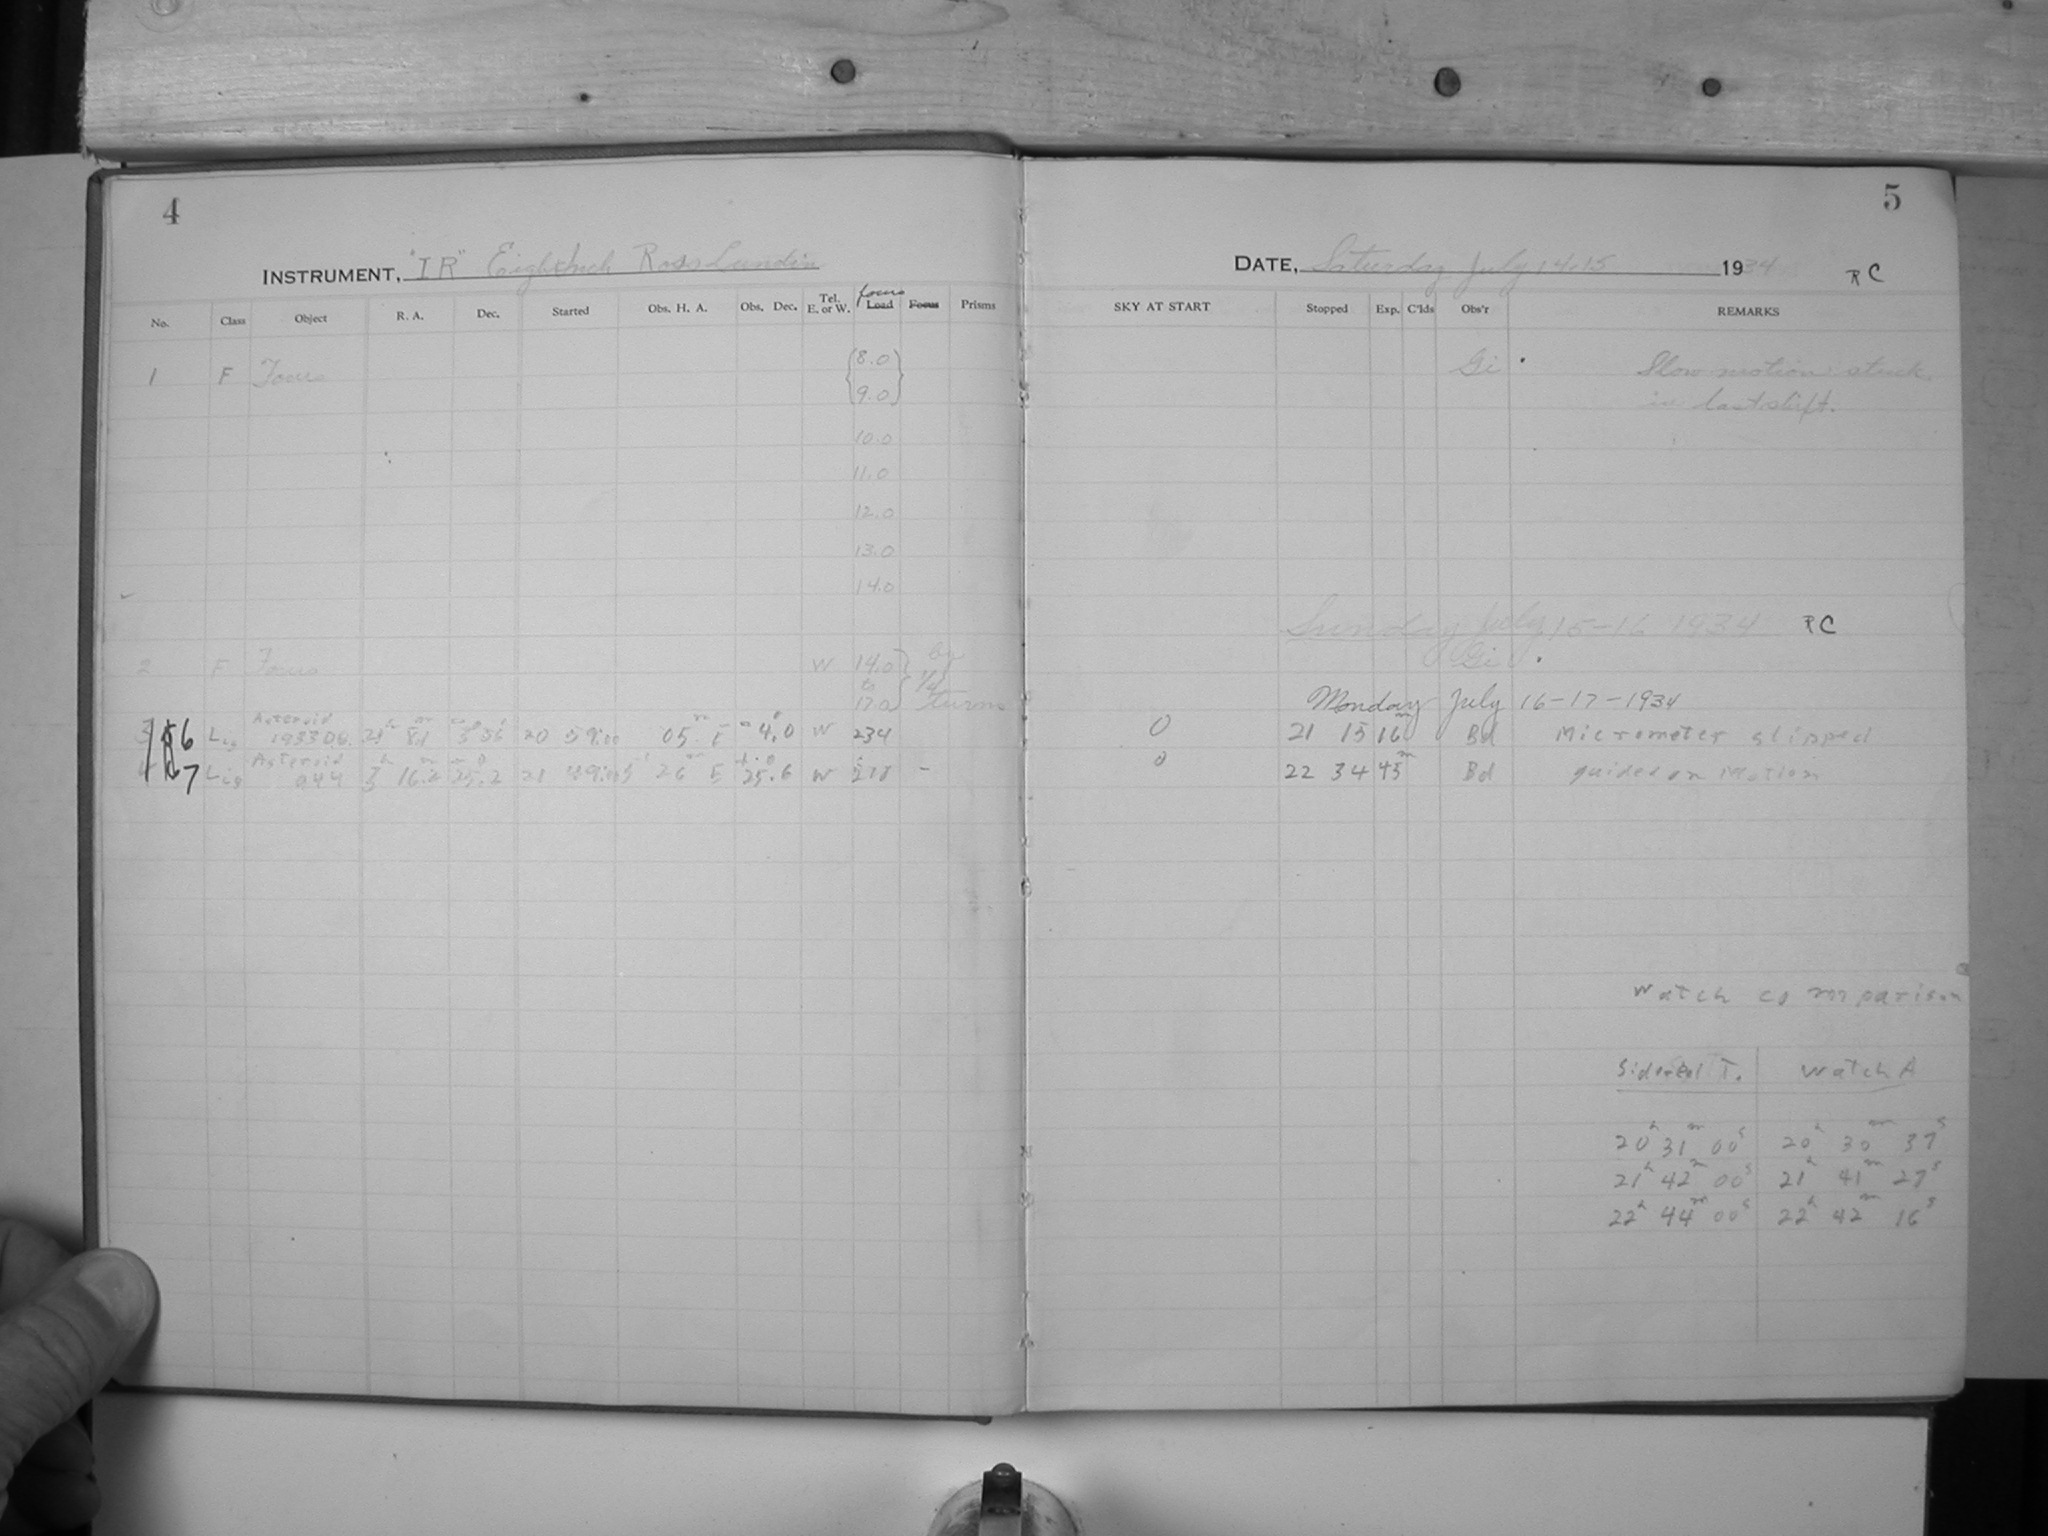 4
INSTRUMENT, "IR" Eight Inch Ross Lundin
No. Class Object R. A. Dec. Started Obs. H. A. Obs. Dec. Tel. E. or W. focus Load Focus Prisms
1 F Focus {8.0
9.0}
10.0
11.0
12.0
13.0
14.0
2 F Focus W 14.0 by
to 1/4
17.0 turns
Asteroid
6 20 59:00 W 234
Asteroid
7 16.2 25.2 21 49:00 25.6 W –
5
DATE, Saturday July 14-15 1934 RC
SKY AT START Stopped Exp. C'lds Obs'r REMARKS
Gi Slow motion stuck
in last shift.
Sunday July 15-16 1934 RC
Gi
Monday July 16-17-1934
0 21 15 16m Bd Micrometer slipped
0 22 34 45m Bd guided on motion
Watch comparison
Sidereal T. Watch A
20h 31m 00s 20h 30m 37s
21h 42m 00s 21h 41m 27s
22h 44m 00s 22h 42m 16s